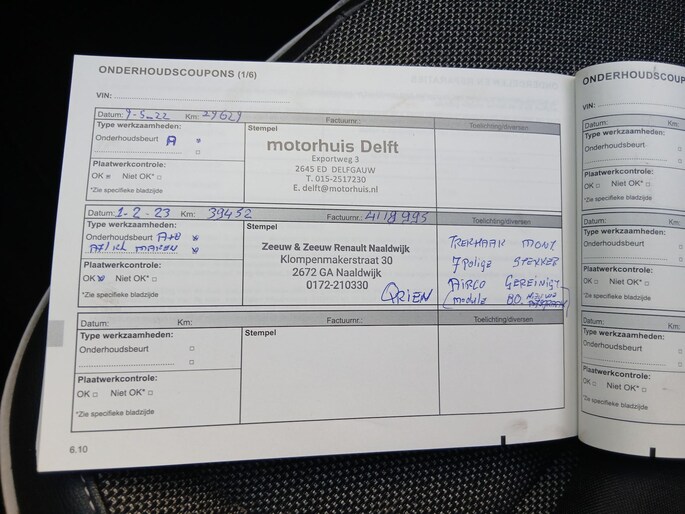 ONDERHOUDSCOUPONS (1/6)
VIN:
Datum: 9-5-22 Km: 29629 Factuurnr.: Toelichting/diversen
Type werkzaamheden: Stempel
Onderhoudsbeurt A
motorhuis Delft
Exportweg 3
2645 ED DELFGAUW
T. 015-2517230
E. delft@motorhuis.nl
Plaatwerkcontrole:
OK Niet OK*
*Zie specifieke bladzijde
Datum: 1-2-23 Km: 39452 Factuurnr.: 4118995 Toelichting/diversen
Type werkzaamheden: Stempel
Onderhoudsbeurt A+B
Zeeuw & Zeeuw Renault Naaldwijk
Klompenmakerstraat 30
2672 GA Naaldwijk
0172-210330
TREKHAAK MONT.
7 polige STEKKER
AIRCO GEREINIGT
(module BO.
Plaatwerkcontrole:
OK Niet OK*
*Zie specifieke bladzijde
Datum: Km: Factuurnr.: Toelichting/diversen
Type werkzaamheden: Stempel
Onderhoudsbeurt
Plaatwerkcontrole:
OK Niet OK*
*Zie specifieke bladzijde
6.10
ONDERHOUDSCOUP
VIN:
Datum:
Type werkzaamheden:
Onderhoudsbeurt
Plaatwerkcontrole:
OK Niet OK*
*Zie specifieke bladz
Datum:
Type werkzaamheden:
Onderhoudsbeurt
Plaatwerkcontrole:
OK Niet OK*
*Zie specifieke bladz
Datum:
Type werkzaamheden:
Onderhoudsbeurt
Plaatwerkcontrole:
OK Niet OK*
*Zie specifieke bladz